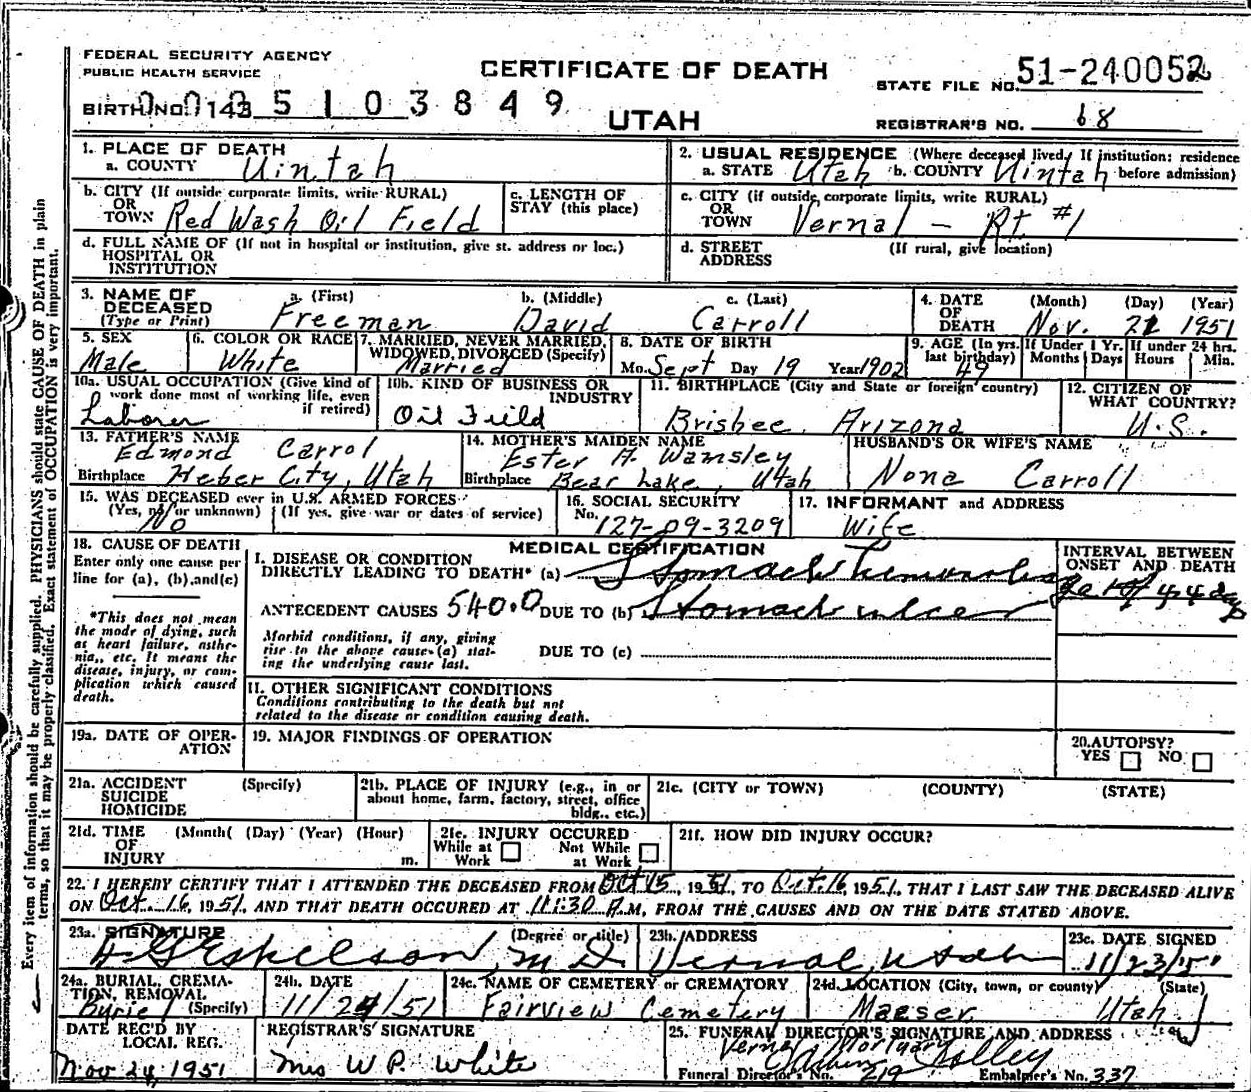 FEDERAL SECURITY AGENCY
PUBLIC HEALTH SERVICE
CERTIFICATE OF DEATH
UTAH
STATE FILE NO. 51-240052
BIRTH NO. 143 5 1 0 3 8 4 9
REGISTRAR'S NO. 68
1. PLACE OF DEATH
a. COUNTY Uintah
2. USUAL RESIDENCE (Where deceased lived. If institution: residence before admission)
a. STATE Utah b. COUNTY Uintah
b. CITY (If outside corporate limits, write RURAL) OR TOWN Red Wash Oil Field
c. LENGTH OF STAY (this place)
c. CITY (if outside corporate limits, write RURAL) OR TOWN Vernal - Rt. #1
d. FULL NAME OF (If not in hospital or institution, give st. address or loc.) HOSPITAL OR INSTITUTION
d. STREET ADDRESS (If rural, give location)
3. NAME OF DECEASED (Type or Print) a. (First) Freeman b. (Middle) David c. (Last) Carroll
4. DATE OF DEATH (Month) (Day) (Year) Nov. 1951
5. SEX Male
6. COLOR OR RACE White
7. MARRIED, NEVER MARRIED, WIDOWED, DIVORCED (Specify) Married
8. DATE OF BIRTH Mo. Sept Day 19 Year 1902
9. AGE (In yrs. last birthday) 49 If Under 1 Yr. Months Days If under 24 hrs. Hours Min.
10a. USUAL OCCUPATION (Give kind of work done most of working life, even if retired) Laborer
10b. KIND OF BUSINESS OR INDUSTRY Oil Field
11. BIRTHPLACE (City and State or foreign country) Brisbee, Arizona
12. CITIZEN OF WHAT COUNTRY? U.S.
13. FATHER'S NAME Edmond Carrol
Birthplace Heber City, Utah
14. MOTHER'S MAIDEN NAME Ester A. Wamsley
Birthplace Bear Lake, Utah
HUSBAND'S OR WIFE'S NAME Nona Carroll
15. WAS DECEASED ever in U.S. ARMED FORCES (Yes, no, or unknown) (If yes, give war or dates of service) No
16. SOCIAL SECURITY No. 127-09-3209
17. INFORMANT and ADDRESS Wife
18. CAUSE OF DEATH
Enter only one cause per line for (a), (b), and (c)
*This does not mean the mode of dying, such as heart failure, asthenia, etc. It means the disease, injury, or complication which caused death.
MEDICAL CERTIFICATION
I. DISEASE OR CONDITION DIRECTLY LEADING TO DEATH* (a) Stomach
ANTECEDENT CAUSES 540.0 DUE TO (b) Stomach ulcer
Morbid conditions, if any, giving rise to the above cause (a) stating the underlying cause last.
DUE TO (c)
INTERVAL BETWEEN ONSET AND DEATH
II. OTHER SIGNIFICANT CONDITIONS
Conditions contributing to the death but not related to the disease or condition causing death.
19a. DATE OF OPERATION
19. MAJOR FINDINGS OF OPERATION
20. AUTOPSY? YES NO
21a. ACCIDENT SUICIDE HOMICIDE (Specify)
21b. PLACE OF INJURY (e.g., in or about home, farm, factory, street, office bldg., etc.)
21c. (CITY or TOWN) (COUNTY) (STATE)
21d. TIME OF INJURY (Month( (Day) (Year) (Hour) m.
21e. INJURY OCCURED While at Work Not While at Work
21f. HOW DID INJURY OCCUR?
22. I HEREBY CERTIFY THAT I ATTENDED THE DECEASED FROM Oct 15, 1951, TO Oct. 16, 1951, THAT I LAST SAW THE DECEASED ALIVE
ON Oct. 16, 1951, AND THAT DEATH OCCURED AT 11:30 P.M, FROM THE CAUSES AND ON THE DATE STATED ABOVE.
23a. SIGNATURE (Degree or title) Eskelson, M.D.
23b. ADDRESS Vernal, Utah
23c. DATE SIGNED 11/23/51
24a. BURIAL, CREMATION, REMOVAL (Specify) Buriel
24b. DATE 11/24/51
24c. NAME OF CEMETERY OR CREMATORY Fairview Cemetery
24d. LOCATION (City, town, or county) (State) Maeser Utah
DATE REC'D BY LOCAL REG. Nov 24, 1951
REGISTRAR'S SIGNATURE Mrs W. P. White
25. FUNERAL DIRECTOR'S SIGNATURE AND ADDRESS Vernal Mortuary
Funeral Director's No. 219 Embalmer's No. 337
Every item of information should be carefully supplied. PHYSICIANS should state CAUSE OF DEATH in plain
terms, so that it may be properly classified. Exact statement of OCCUPATION is very important.